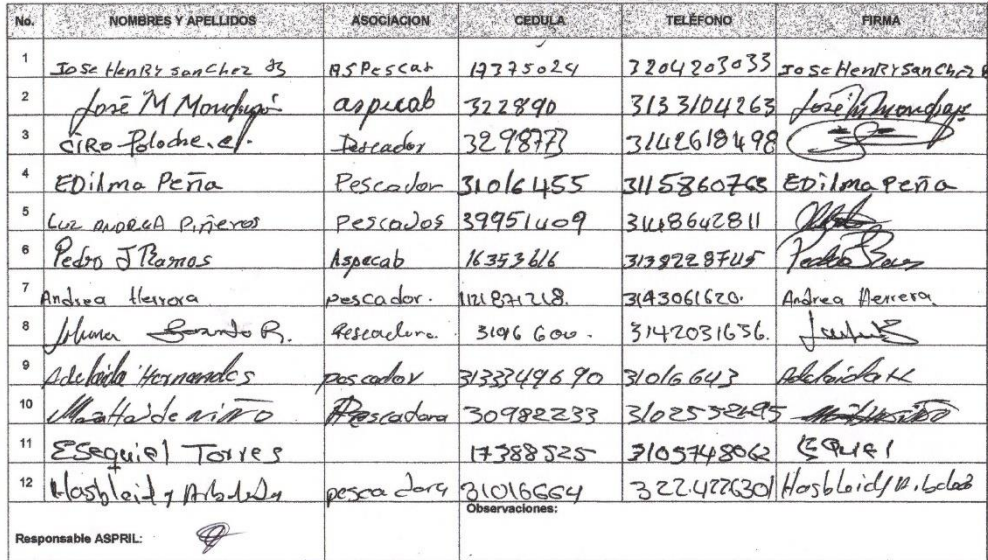 No. NOMBRES Y APELLIDOS ASOCIACION CEDULA TELÉFONO FIRMA
1 Jose HenRy sanchez AsPescar 17375024 3204203033 Jose HenRy Sanchez
2 José M aspecab 322890 3133104263 José M
3 CIRO Poloche. Pescador 3298773 3142618498
4 EDilma Peña Pescador 31016455 3115860763 EDilma Peña
5 Luz ANDREA Piñeros Pescados 39951409 3148642811
6 Pedro J Ramos Aspecab 16353616 3138228745 Pedro
7 Andrea Herrera pescador. 1121871218. 3143061620. Andrea Herrera.
8 R. Pescadora. 3196600. 3142031656.
9 Adelaida Hernandes pescador 3133349690 31016643 Adelaida H
10 de niño Pescadora 30982233
11 ESequiel Torres 17388525 3105748062
12 Hasbleidy Arboleda pescadora 31016664 3224226301 Hasbleidy
Observaciones:
Responsable ASPRIL: